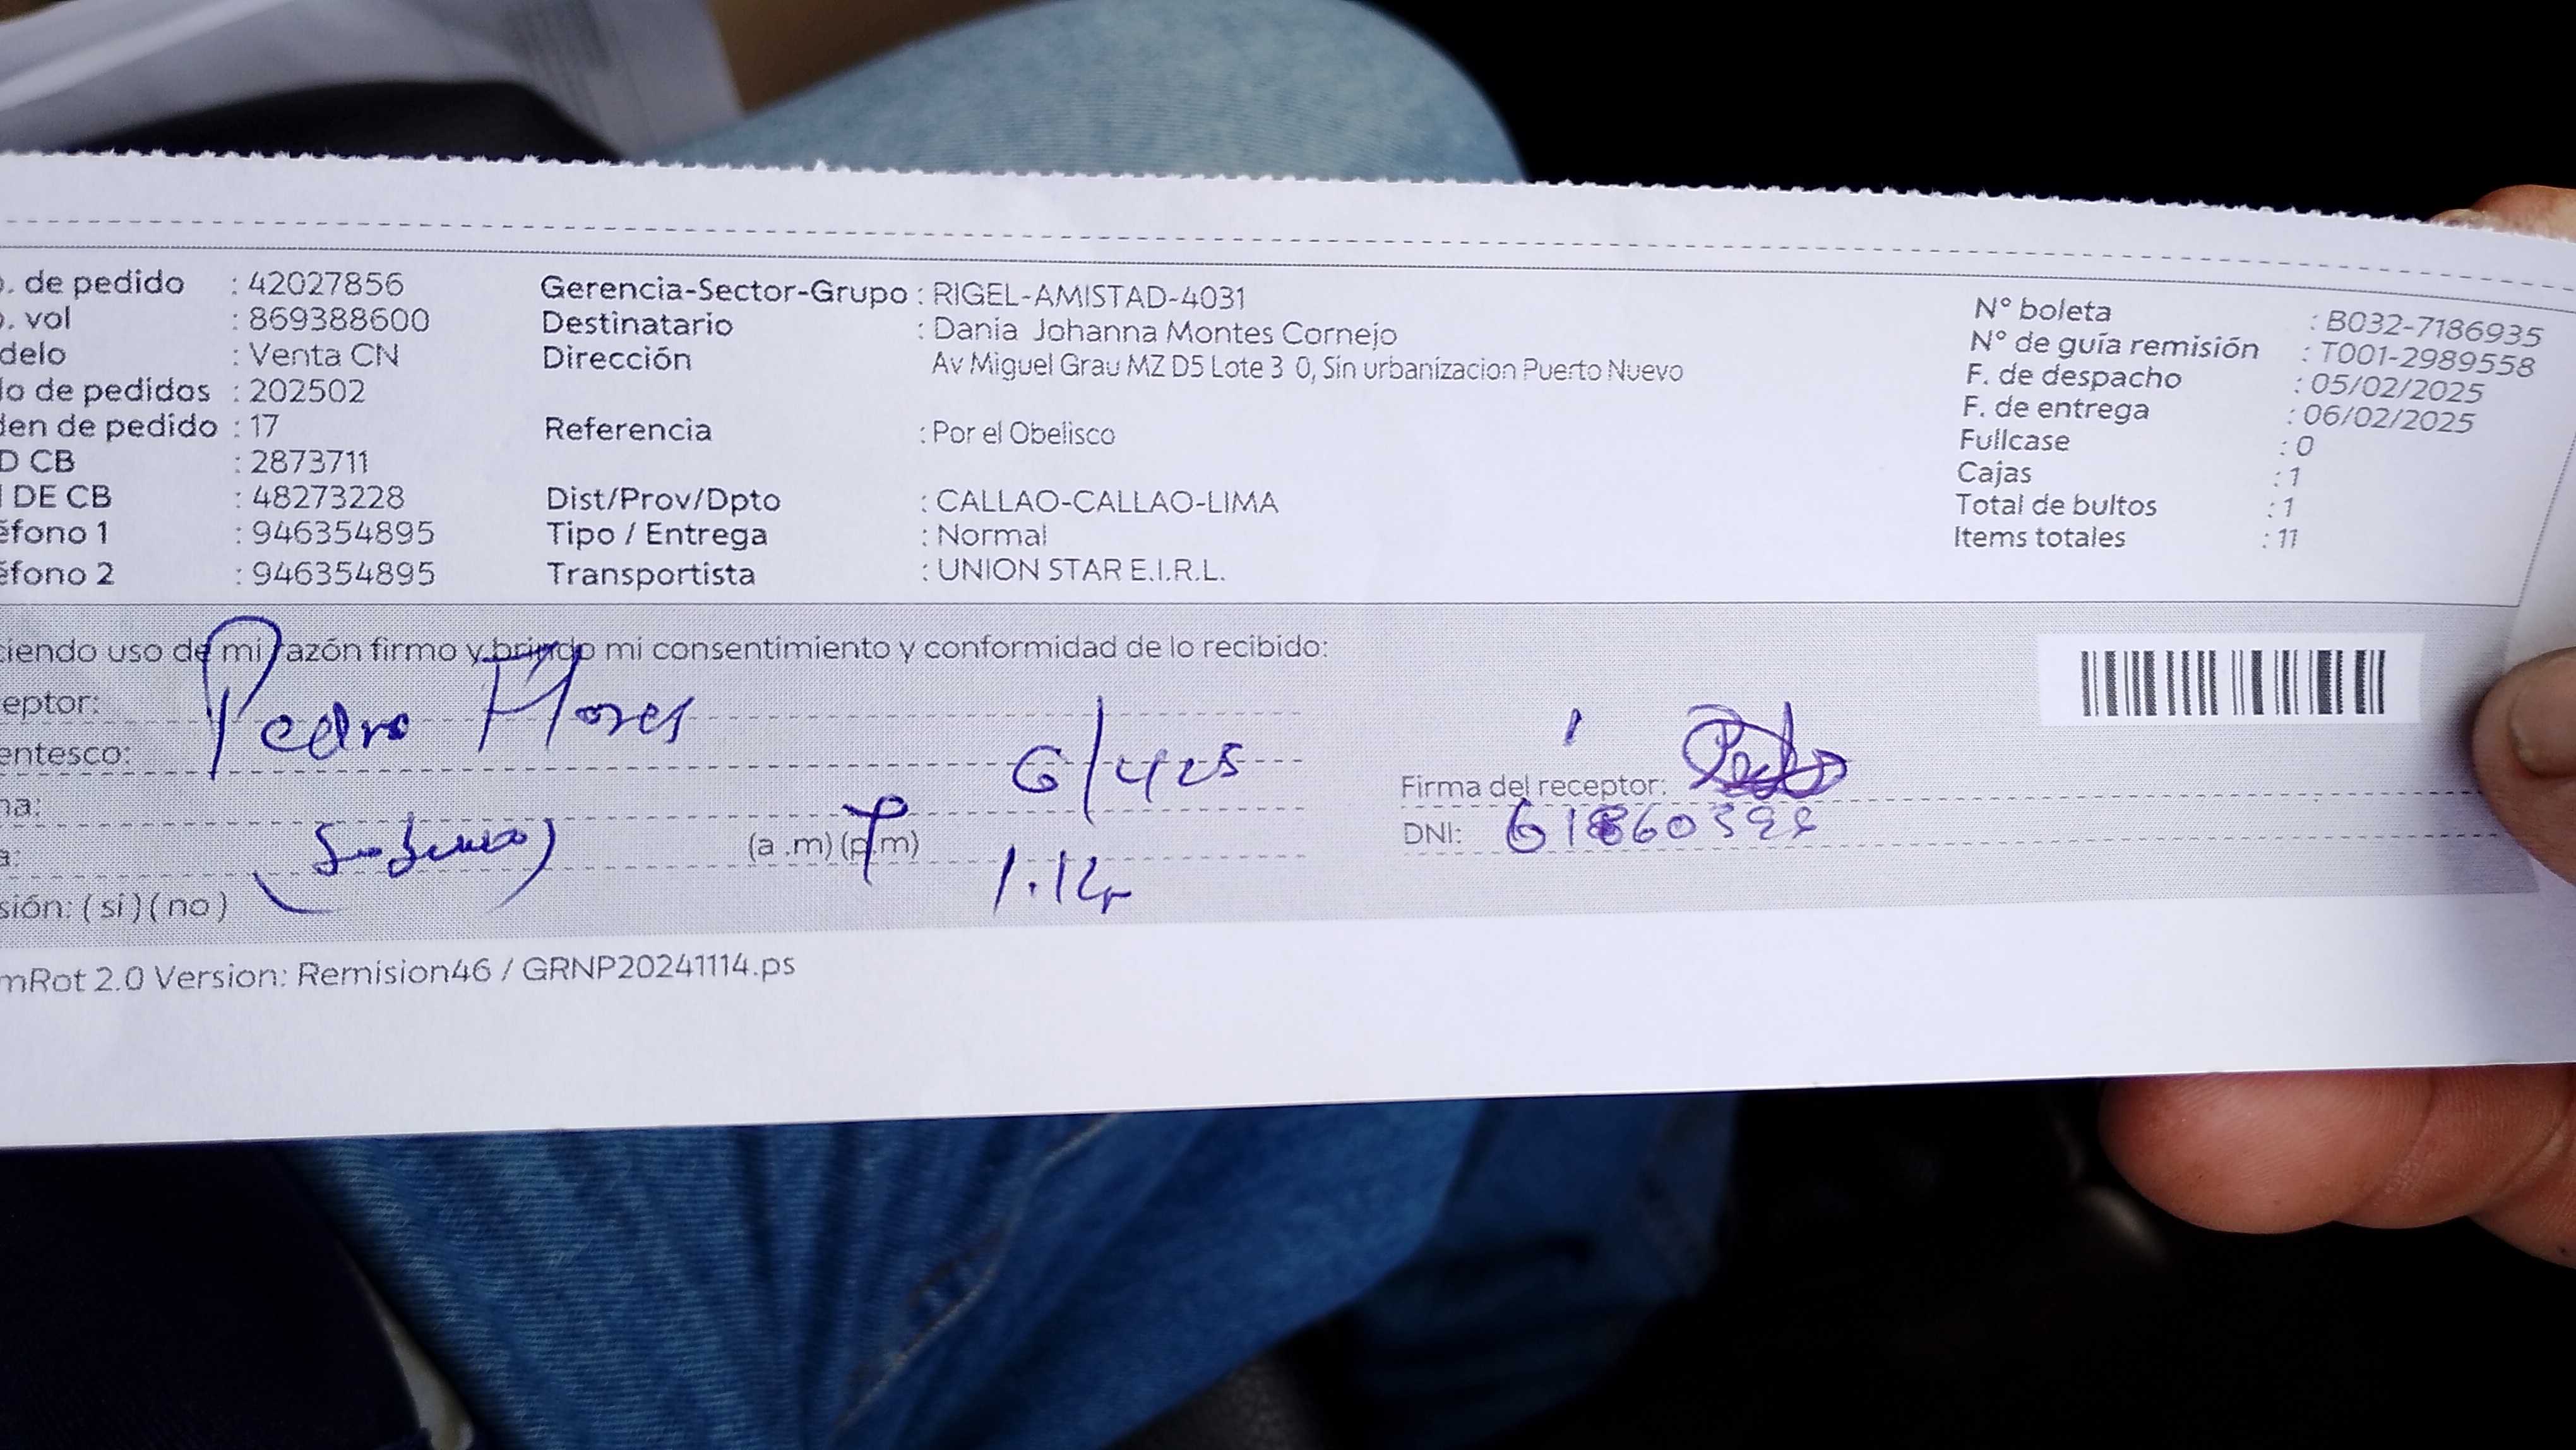 . de pedido : 42027856
. vol : 869388600
delo : Venta CN
o de pedidos : 202502
den de pedido : 17
D CB : 2873711
DE CB : 48273228
éfono 1 : 946354895
éfono 2 : 946354895
Gerencia-Sector-Grupo : RIGEL-AMISTAD-4031
Destinatario : Dania Johanna Montes Cornejo
Dirección Av Miguel Grau MZ D5 Lote 3 0, Sin urbanizacion Puerto Nuevo
Referencia : Por el Obelisco
Dist/Prov/Dpto : CALLAO-CALLAO-LIMA
Tipo / Entrega : Normal
Transportista : UNION STAR E.I.R.L.
N° boleta : B032-7186935
N° de guía remisión : T001-2989558
F. de despacho : 05/02/2025
F. de entrega : 06/02/2025
Fullcase : 0
Cajas : 1
Total de bultos : 1
Items totales : 11
ciendo uso de mi razón firmo y brindo mi consentimiento y conformidad de lo recibido:
eptor: Pedro Flores
entesco:
na:
a: (a .m) (p.m)
sión: ( si ) ( no )
Firma del receptor: Pedro
DNI:
mRot 2.0 Version: Remision46 / GRNP20241114.ps